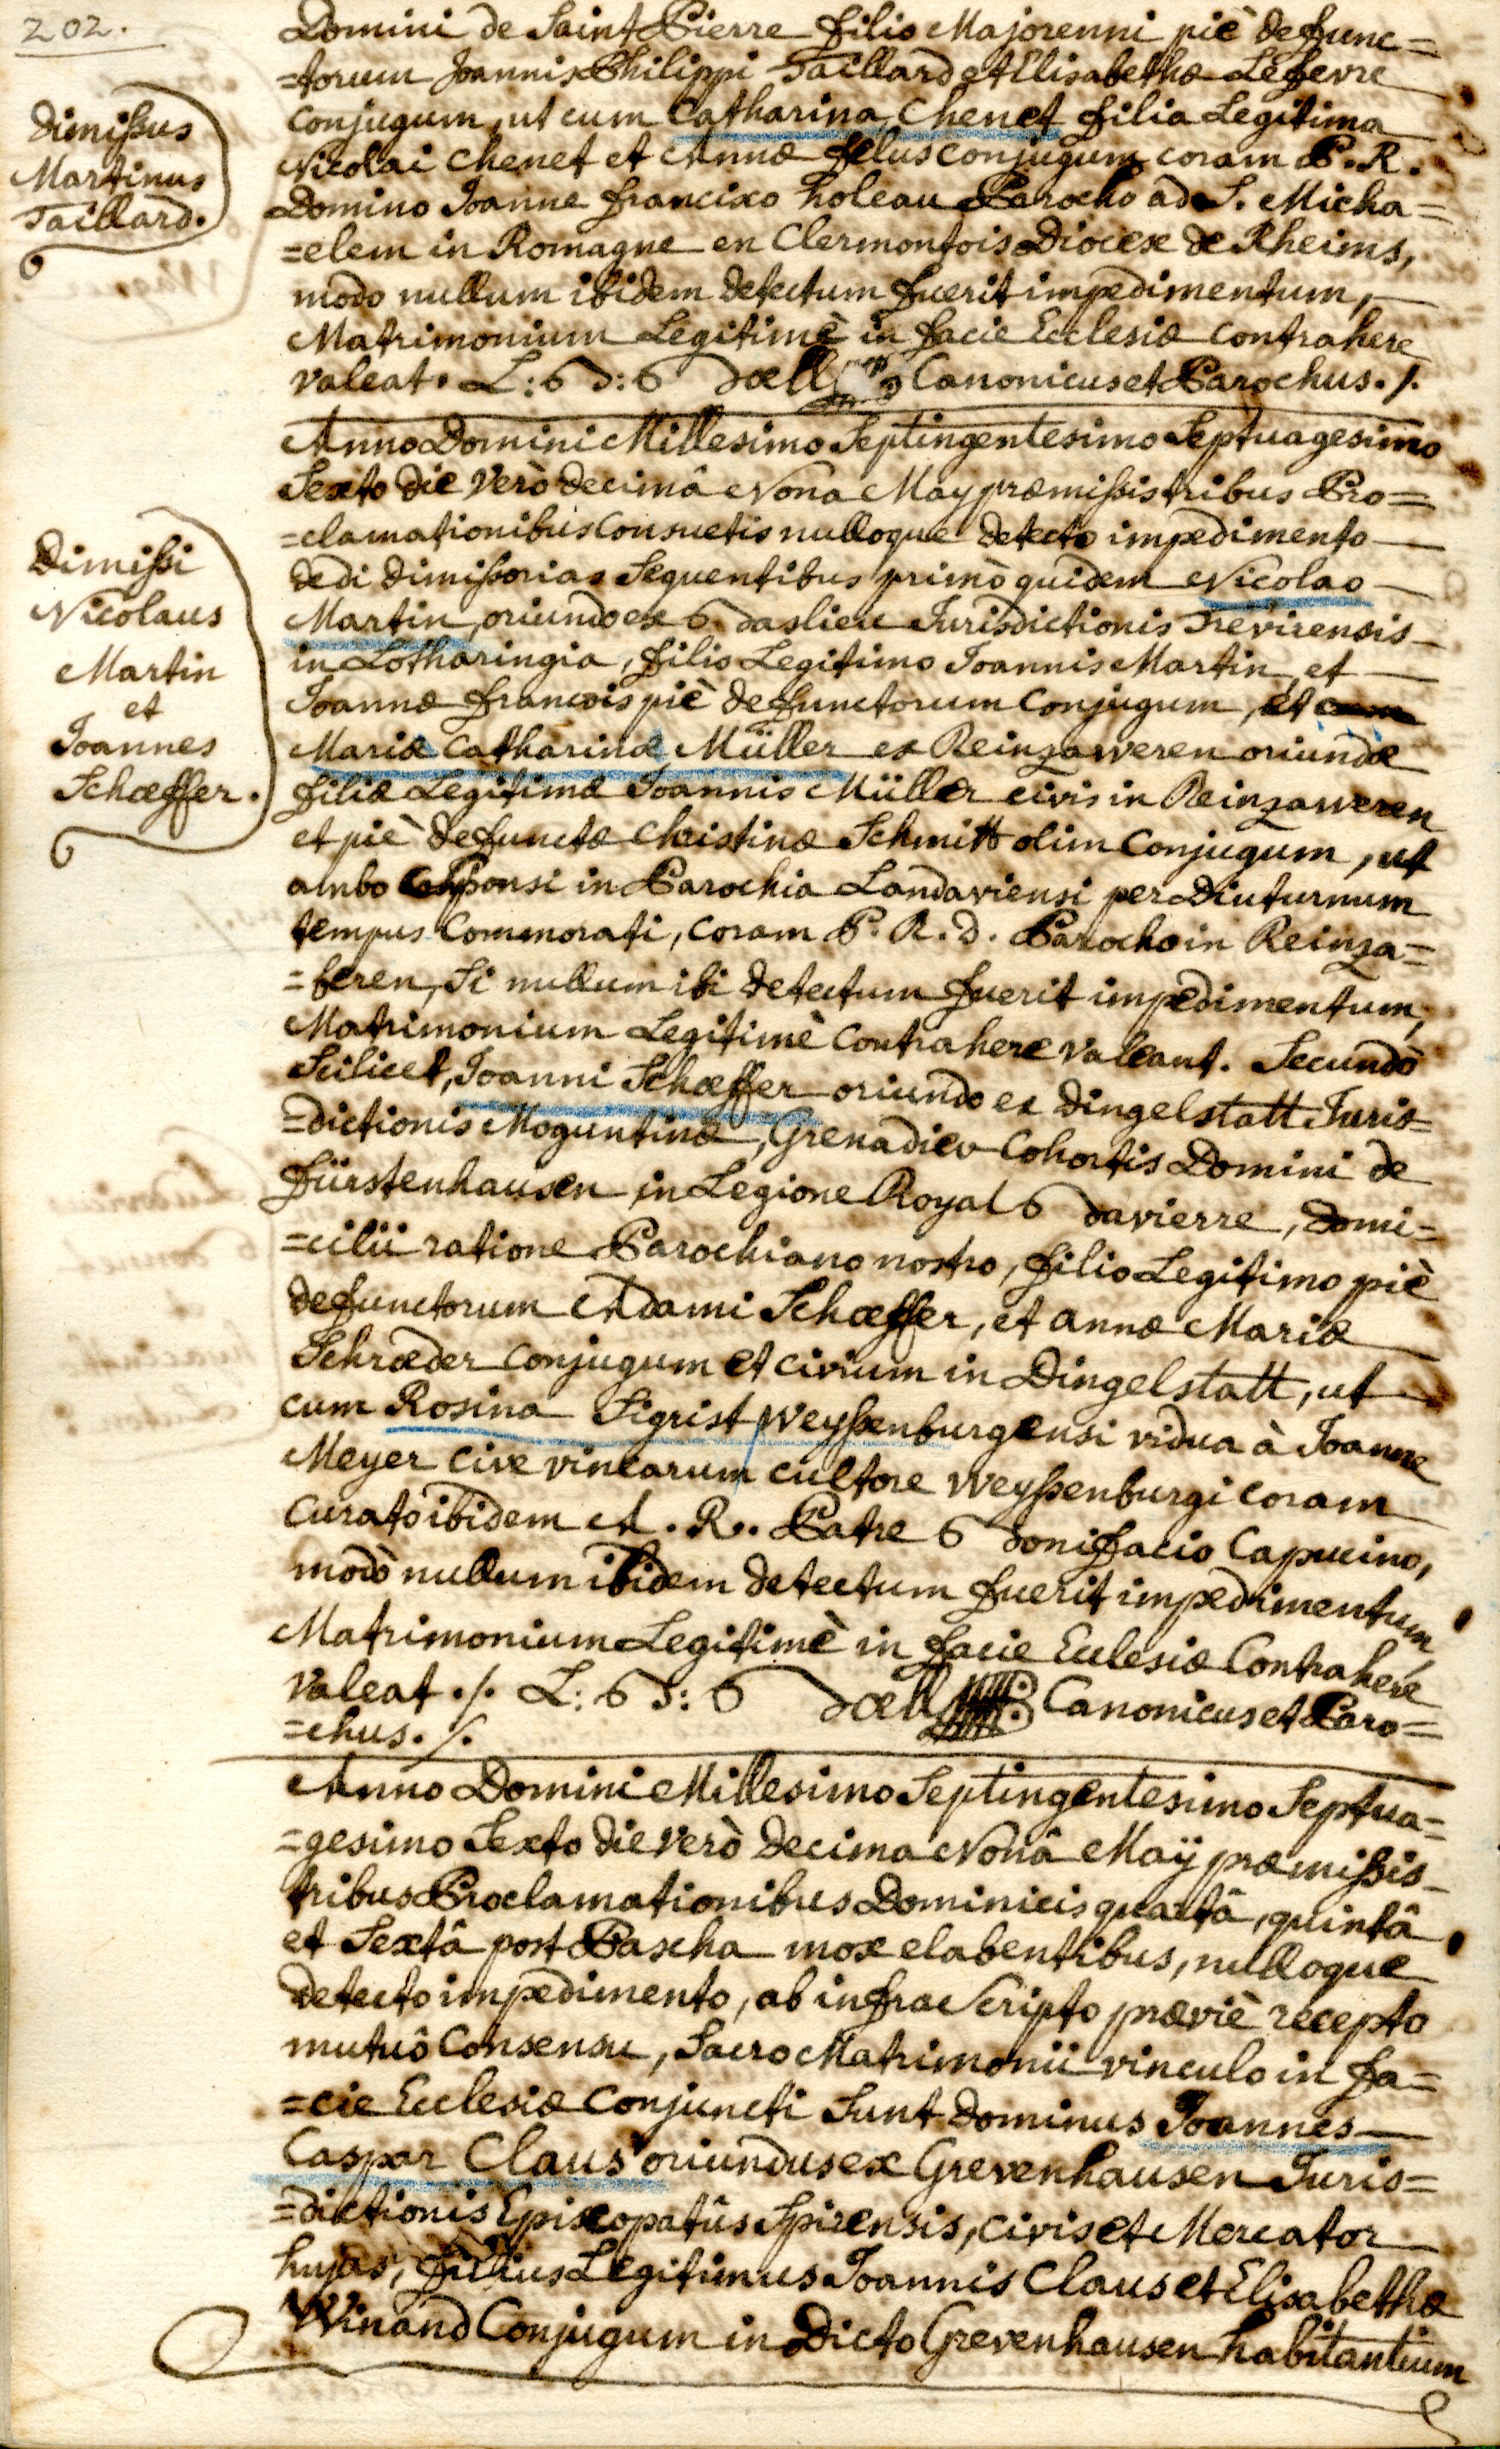 202.
Domini de Saint Pierre filio Majorenni piè defunc=
=torum Joannis Philippi Taillard et Elisabethæ Lefevre
Conjugum, ut cum Catharina Chenet filia Legitima
Nicolai Chenet et Annæ Conjugum coram P. R.
Domino Joanne francisco holeau Parocho ad S. Micha=
=elem in Romagne en Clermontois Diocese de Rheims,
modo nullum ibidem detectum fuerit impedimentum,
Matrimonium Legitimè in facie Ecclesiæ contrahere
valeat. L: B: B Canonicus et Parochus. /.
Dimissus
Martinus
Taillard.
Anno Domini Millesimo Septingentesimo Septuagesimo
Sexto die verò decimâ Nona May præmissis tribus Pro=
=clamationibus Consuetis nulloque detecto impedimento
dedi dimissorias Sequentibus primò quidem Nicolao
Martin, oriundo ex Baslieu Jurisdictionis Trevirensis
in Lotharingia, filio Legitimo Joannis Martin, et
Joannæ francois piè defunctorum Conjugum, et
Mariæ Catharinæ Müller ex Reinzaweren oriundæ
filiæ Legitimæ Joannis Müller civis in Reinzaweren
et piè defunctæ Christinæ Schmitt olim Conjugum, ut
ambo Sponsi in Parochia Landaviensi per Diuturnum
tempus Commorati, Coram P. R. D. Parocho in Reinza=
=beren, Si nullum ibi detectum fuerit impedimentum,
Matrimonium Legitimè Contrahere valeant. Secundò
Scilicet, Joanni Schæffer oriundo ex Dingelstatt Juris=
=dictionis Moguntinæ, Grenadier Cohortis Domini de
Fürstenhausen in Legione Royal Bavierre, Domi=
=cilii ratione Parochiano nostro, filio Legitimo piè
defunctorum Adami Schæffer, et annæ Mariæ
Schrœder Conjugum et civium in Dingelstatt, ut
cum Rosina Sigrist Weyssenburgensi vidua à Joanne
Meyer Cive vinearum cultore Weyssenburgi coram
Curato ibidem A. R. Patre Bonifacio Capucino,
modò nullum ibidem detectum fuerit impedimentum,
Matrimonium Legitimè in facie Ecclesiæ Contrahere
valeat ./. L: B: B Canonicus et Paro=
=chus. /.
Dimissi
Nicolaus
Martin
et
Joannes
Schæffer.
Anno Domini Millesimo Septingentesimo Septua=
=gesimo Sexto die verò decima Nonâ Maÿ præmissis
tribus Proclamationibus Dominicis quartâ, quintâ
et Sextâ post Pascha mox elabentibus, nulloque
detecto impedimento, ab infra Scripto præviè recepto
mutuô Consensu, Sacro Matrimonii vinculo in fa=
=cie Ecclesiæ Conjuncti Sunt Dominus Joannes
Caspar Claus oriundus ex Grevenhausen Juris=
=dictionis Episcopatûs Spirensis, civis et Mercator
hujas, filius Legitimus Joannis Claus et Elisabethæ
Winand Conjugum in Dicto Grevenhausen habitantium